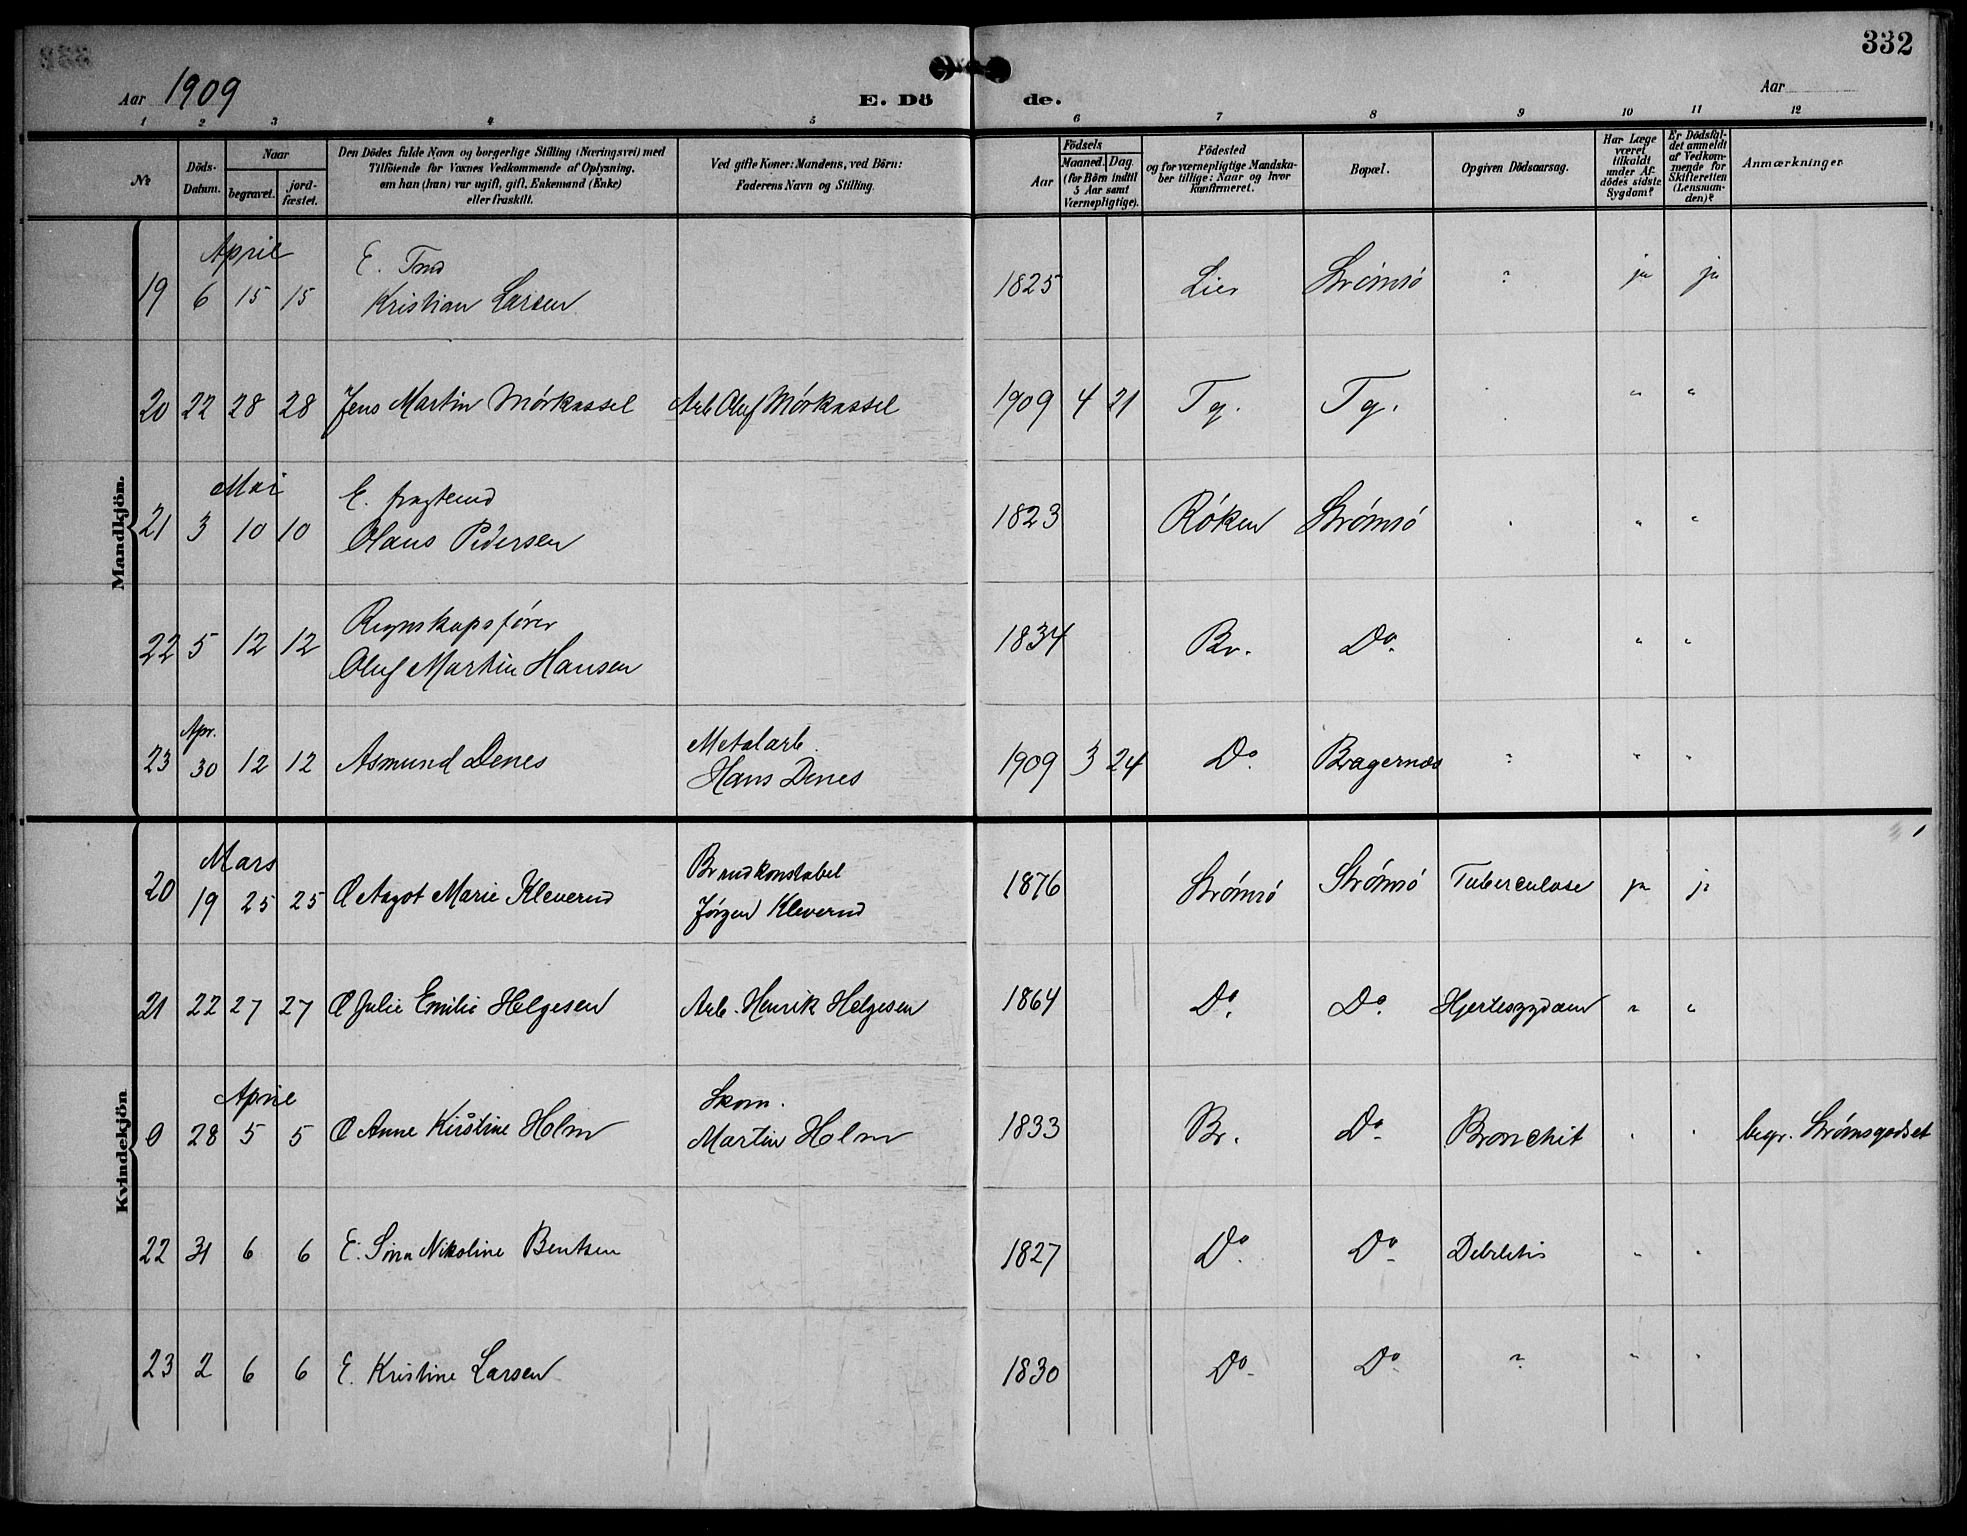 332
Aar 1909
E. Dö de.
Aar
1 2 3 4 5 6 7 8 9 10 11 12
№
Döds-Datum.
Naar
begravet.
jord-fæstet.
Den Dödes fulde Navn og borgerlige Stilling (Næringsvei) med
Tilföiende for Voxnes Vedkommende af Oplysning,
om han (hun) var ugift, gift, Enkemand (Enke)
eller fraskilt.
Ved gifte Koner: Mandens, ved Börn:
Faderens Navn og Stilling.
Aar
Födsels
Maaned. Dag.
(for Börn indtil
5 Aar samt
Værnepligtige).
Födested
og for værnepligtige Mandska-
ber tillige: Naar og hvor
konfirmeret.
Bopæl.
Opgiven Dödsaarsag.
Har Læge
været
tilkaldt
under Af-
dödes sidste
Sygdom?
Er Dödsfal-
det anmeldt
af Vedkom-
mende for
Skifteretten
(Lensman-
den)?
Anmærkninger
Mandkjön.
April E.
19 6 15 15 Kristian Larsen 1825 Lier Strømsø ? ja ja
20 22 28 28 Jens Martin Mörkassel Arb. Oluf Mörkassel 1909 4 21 Tg. Tg. " "
Mai E.
21 3 10 10 Olaus Pedersen 1823 Röken Strømsø " "
Regnskapsfører
22 5 12 12 Oluf Martin Hansen 1834 Br. Do. " "
Apr. Metalarb.
23 30 12 12 Asmund Denes Hans Denes 1909 3 24 Do. Bragernæs ? " "
Kvindekjön
Mars Brandkonstabel
20 19 25 25 Aagot Marie Kleverud Jörgen Kleverud 1876 Strømsø Strømsø Tuberculose ja ja
21 22 27 27 Julie Emilie Helgesen Arb. Henrik Helgesen 1864 Do. Do. Hjertesygdom " "
April Skom.
0 28 5 5 Anne Kirstine Holm Martin Holm 1833 Br. Do. Bronchit " " begr. Strømsgodset
22 31 6 6 E. Nikoline Bentsen 1827 Do. Do. " "
23 2 6 6 E. Kristine Larsen 1830 Do. Do. ? " "